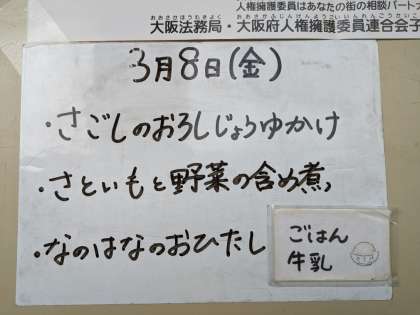 人権擁護委員はあなたの街の相談パート
おおさかほうむきょく おおさかふじんけんようごいいんれんごうかい
大阪法務局・大阪府人権擁護委員連合会子
3月8日(金)
・さごしのおろしじょうゆかけ
・さといもと野菜の含め煮
・なのはなのおひたし
ごはん
牛乳